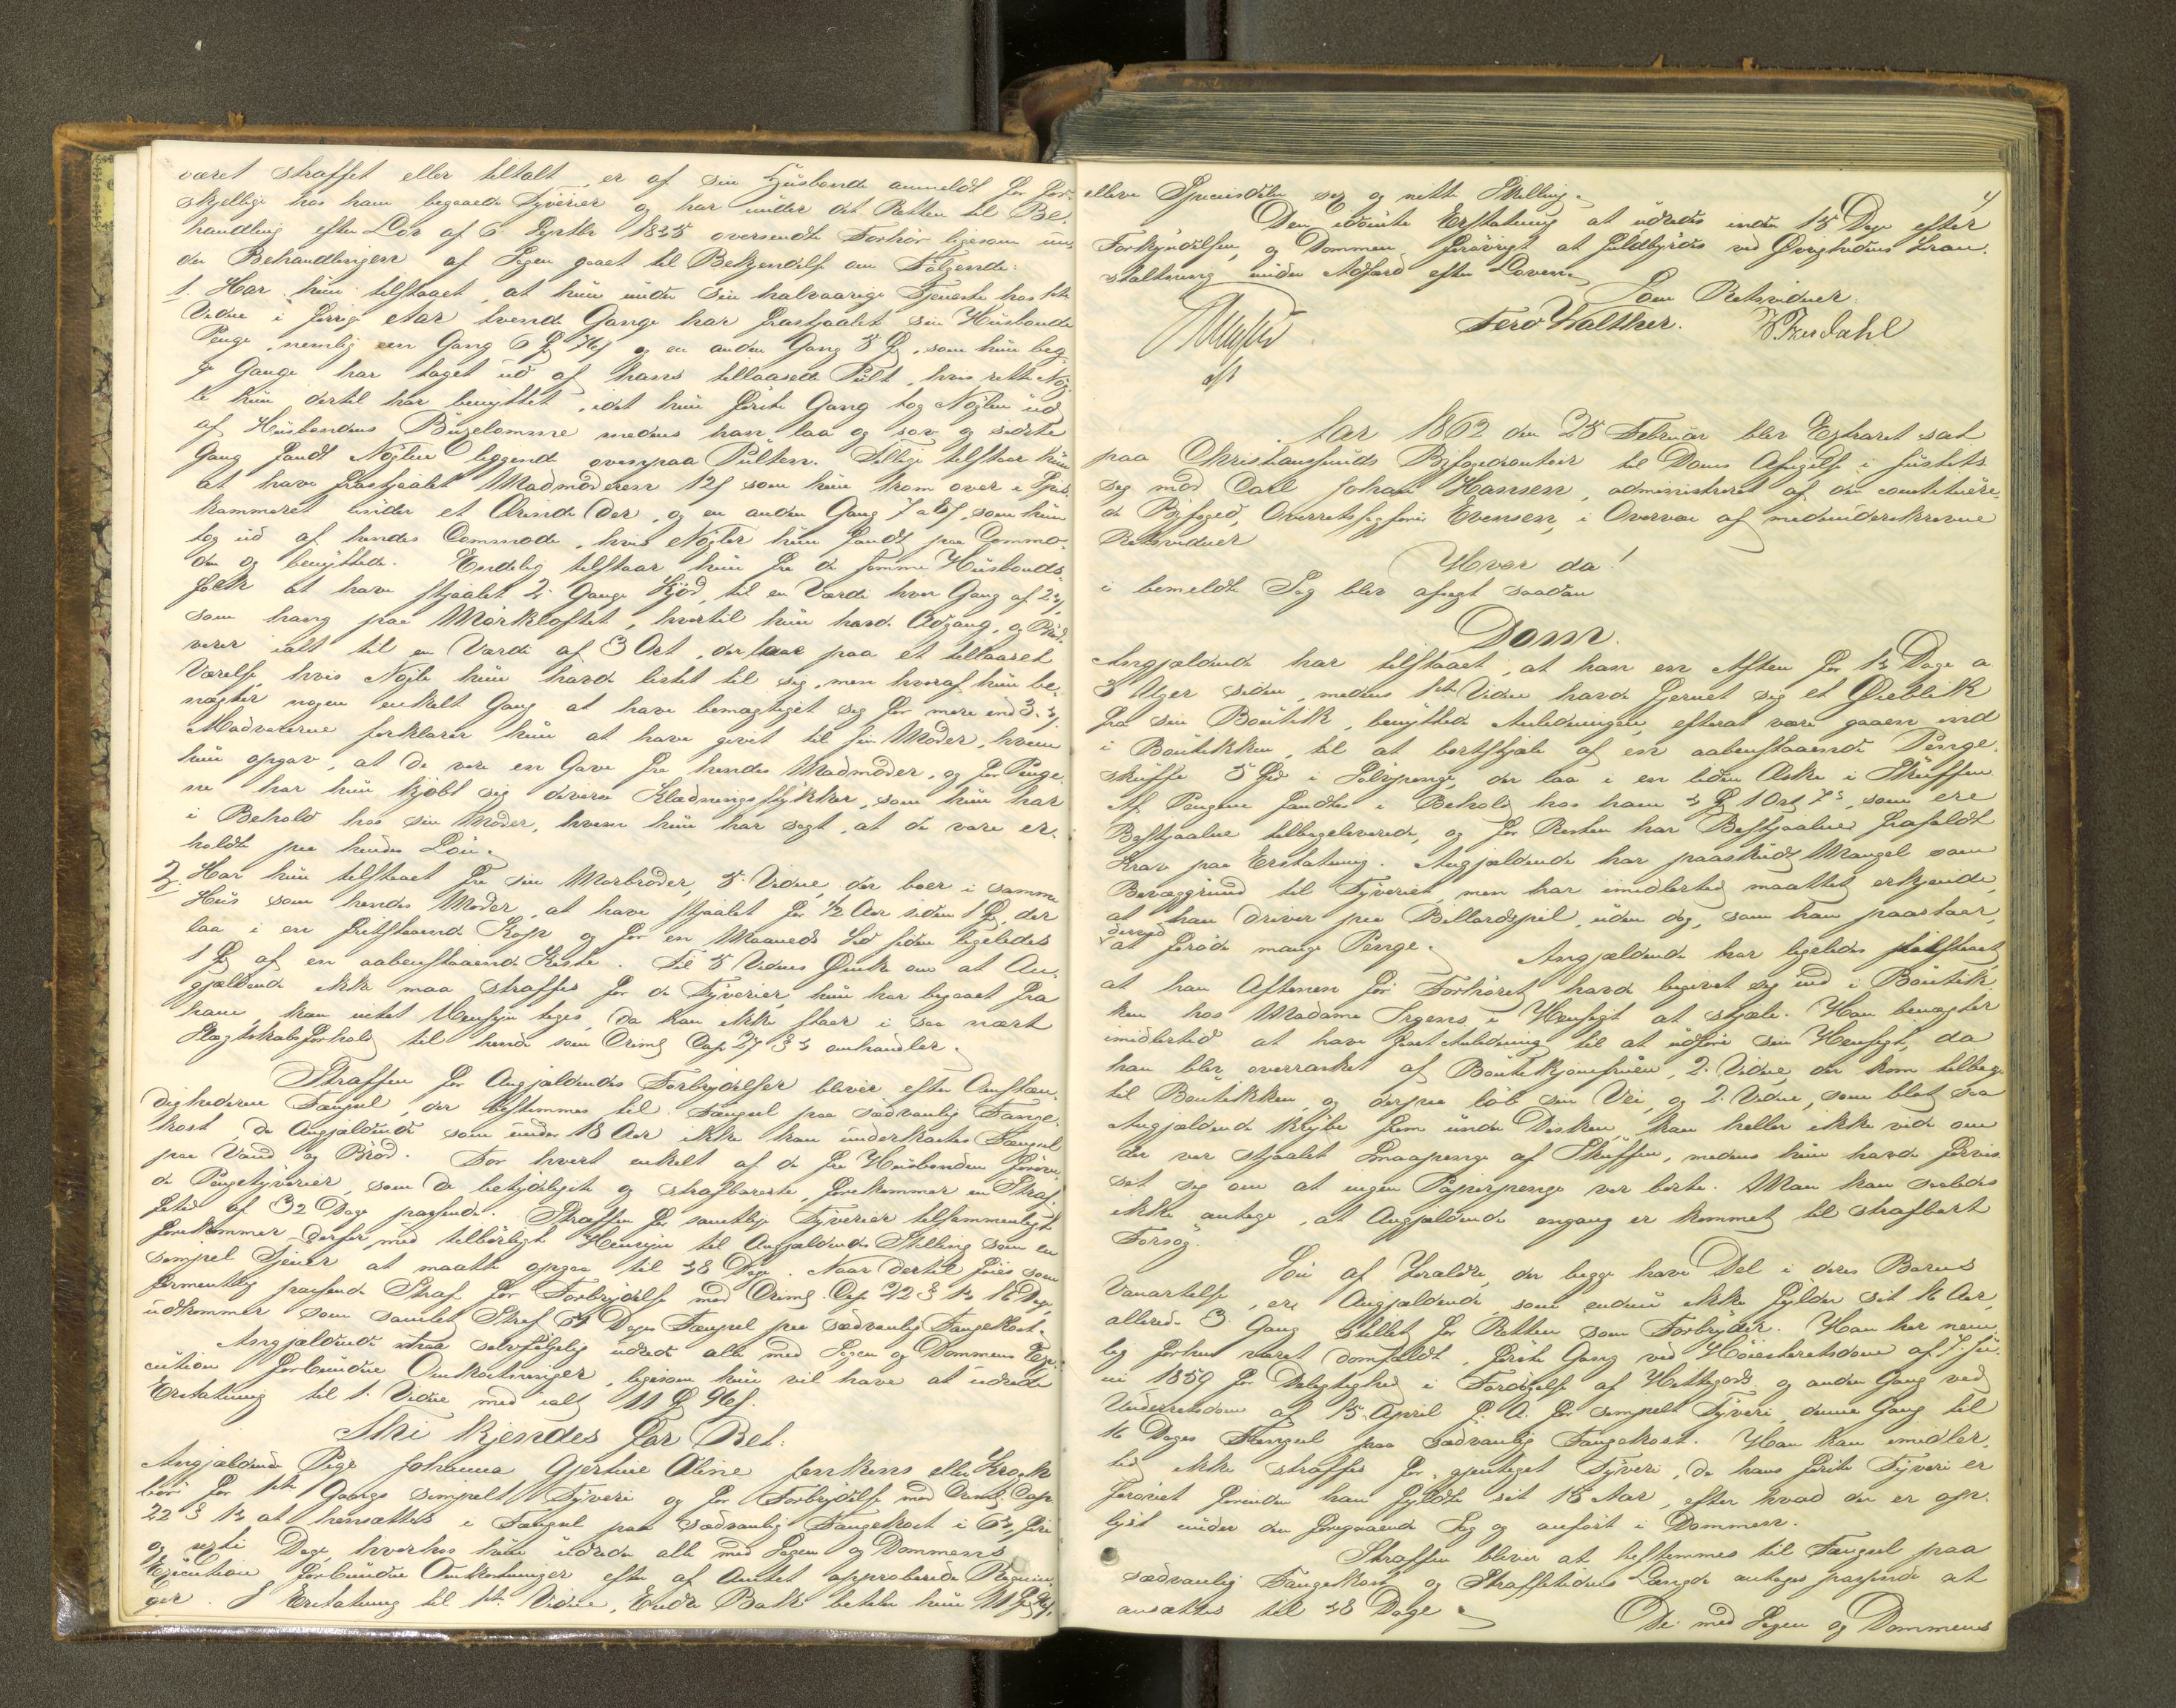 været straffet eller tiltalt, er af sin Husbonde anmeldt for for-
skjellige hos ham begaaede Tyverier og har under det Retten til Be-
handling efter Lov af 6 Septbr 1845 oversendte Forhør ligesom un-
der Behandlingen af Sagen gaaet til Bekjendelse om Følgende:
1. Har hun tilstaaet, at hun under sin halvaarige Tjeneste hos 1ste
Vidne i forrige Aar tvende Gange har frastjaalet sin Husbonde
Penge, nemlig en Gang 6 Spd og en anden Gang 5 Spd, som hun beg-
ge Gange har taget ud af hans tillaasede Pult, hvis rette Nøg-
le hun dertil har benyttet, idet hun første Gang tog Nøglen ud
af Husbondens Buxelomme medens han laa og sov og sidste
Gang fandt Nøglen liggende ovenpaa Pulten. Tillige tilstaar hun
at have frastjaalet Madmoderen 12 s som hun kom over i Spis-
kammeret under et Ærinde der, og en anden Gang 7 a 8 s, som hun
tog ud af hendes Commode, hvis Nøgler hun fandt paa Commo-
den og benyttede. Endelig tilstaar hun fra de samme Husbonds-
folk at have stjaalet 2 Gange Kjød, til en Værdi hver Gang af 24 s,
som hang paa Mørkloftet, hvortil hun havde Adgang, og Brød-
varer ialt til en Værdi af 3 Ort, der laae paa et tillaaset
Værelse, hvis Nøgle hun havde listet til sig, men hvoraf hun be-
nægter nogen enkelt Gang at have bemægtiget sig for mere end 3-4 s.
Madvarerne forklarer hun at have givet til sin Moder, hvem
hun opgav, at de vare en Gave fra hendes Madmoder, og for Penge-
ne har hun kjøbt sig diverse Klædningsstykker, som hun har
i Behold hos sin Moder, hvem hun har sagt, at de vare er-
holdte paa hendes Løn.
2. Har hun tilstaaet fra sin Morbroder, 5. Vidne, der boer i samme
Huus som hendes Moder, at have stjaalet for 1/2 Aar siden 1 Spd, der
laa i en fritstaaende Kop og for en Maaneds Tid siden ligeledes
1 Spd af en aabenstaaende Kiste. Til 5 Vidnes Ønske om at An-
gjældende ikke maa straffes for de Tyverier, hun har begaaet fra
ham, kan intet Hensyn tages, da han ikke staar i saa nært
Slægtskabsforhold til hende som Criml Cap 27 § 4 omhandler.
Straffen for Angjældendes Forbrydelser bliver efter Omstæn-
dighederne Fængsel, der bestemmes til Fængsel paa sædvanlig Fange-
kost, da Angjældende som under 18 Aar ikke kan underkastes Fængsel
paa Vand og Brød. For hvert enkelt af de fra Husbonden forøve-
de Pengetyverier, som de betydeligste og strafbareste, forekommer en Straf-
fetid af 32 Dage passende. Straffen for samtlige Tyverier tilsammenlagt
forekommer derfor med tilbørligt Hensyn til Angjældendes Stilling som en
simpel Tjener at maatte opgaa til 48 Dage. Naar dertil føies som
formentlig passende Straf for Forbrydelse mod Criml. Cap 22 § 14 16 Dage,
udkommer som samlet Straf 64 Dages Fængsel paa sædvanlig Fangekost.
Angjældende maa selvfølgelig udrede alle med Sagen og Dommens Exe-
cution forbundne Omkostninger, ligesom hun vil have at udrede
Erstatning til 1. Vidne med ialt 11 Spd 96 s.
Thi kjendes for Ret:
Angjældende Pige Johanna Gjertine Oline Jenkins eller Krogh
bør for 1ste Gangs simpelt Tyveri og for Forbrydelse mod Criml. Cap
22 § 14 at hensættes i Fængsel paa sædvanlig Fangekost i 64, fire
og sexti Dage, hvorhos hun udreder alle med Sagen og Dommens
Execution forbundne Omkostninger efter af Amtet approberede Regnin-
ger. I Erstatning til 1ste Vidne, Endre Bakk betaler hun 11 Spd 96 s.
4
elleve Speciesdaler sex og nitti Skilling.
Den idømte Erstatning at udredes inden 15 Dage efter
Forkyndelsen, og Dommen forøvrigt at fuldbyrdes ved Øvrighedens Foran-
staltning under Adfærd efter Loven.
Som Retsvidner:
Ferd Walther.
Aar 1862 den 25 Februar blev Extraret sat
paa Christianssunds Byfogedcontoir til Doms Afsigelse i Justits-
sag mod Carl Johan Hansen, administreret af den constituere-
de Byfoged, Overretssagfører Evensen, i Overvær af medunderskrevne
Retsvidner
Hvor da!
i bemeldte Sag blev afsagt saadan
Dom.
Angjældende har tilstaaet, at han en Aften for 14 Dage a
3 Uger siden, medens 1ste Vidne havde fjernet sig et Øieblik
fra sin Boutik, benyttede Anledningen, efterat være gaaen ind
i Boutikken, til at bortstjæle af en aabenstaaende Penge-
skuffe 5 Spd i Sølvpenge, der laa i en liden Æske i Skuffen.
Af Pengene fandtes i Behold hos ham 4 Spd 1 Ort 7 s, som ere
Bestjaalne tilbageleverede, og for Resten har Bestjaalne frafaldt
Krav paa Erstatning. Angjældende har paaskudt Mangel som
Bevæggrund til Tyveriet, men har imidlertid maattet erkjende,
at han driver paa Billardspil, uden dog, som han paastaar,
derved at forøde mange Penge. Angjældende har ligeledes tilstaaet
at han Aftenen før Forhøret havde begivet sig ind i Boutik-
ken hos Madame Irgens i Hensigt at stjæle. Han benægter
imidlertid at have faaet Anledning til at udføre sin Hensigt, da
han blev overrasket af Boutikjomfruen, 2. Vidne, der kom tilbage
til Boutikken, og derpaa løb sin Vei, og 2. Vidne, som blot saa
Angjældende krybe frem under Disken, kan heller ikke vide om
der var stjaalet Smaapenge af Skuffen, medens hun havde forvis-
set sig om at ingen Papirpenge var borte. Man kan saaledes
ikke antage, at Angjældende engang er kommet til strafbart
Forsøg.
Søn af Forældre, der begge have Del i deres Barns
Vanartelse, er Angjældende, som endnu ikke fylder sit 16 Aar,
allerede 3 Gang stillet for Retten som Forbryder. Han har nem-
lig forhen været domfældt, første Gang ved Høiesteretsdom af 7 Ju-
ni 1859 for Delagtighed i Fordølgelse af Hittegods og anden Gang ved
Underretsdom af 15. April f. A. for simpelt Tyveri, denne Gang til
16 Dages Fængsel paa sædvanlig Fangekost. Han kan imidler-
tid ikke straffes for gjentaget Tyveri, da hans første Tyveri er
forøvet forinden han fyldte sit 15 Aar, efter hvad der er op-
lyst under den foregaaende Sag og anført i Dommen.
Straffen bliver at bestemmes til Fængsel paa
sædvanlig Fangekost og Straffetidens Længde antages passende at
ansættes til 48 Dage.
De med Sagen og Dommens